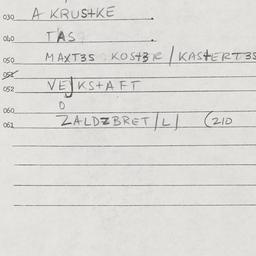 030 A KRUSTKE
040 TAS
050 MAXT3S KOST3R / KASTERT3S
051
052 VEJKSTAFT
O
060
061 ZALDZBRET/L/ (210